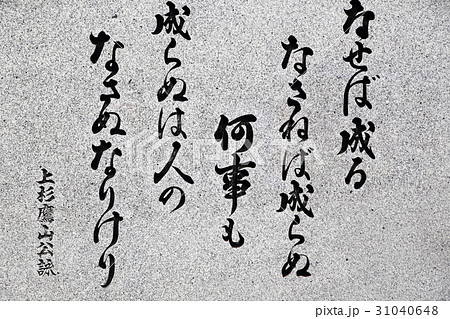 なせば成る
なさねば成らぬ
何事も
成らぬは人の
なさぬなりけり
上杉鷹山公謡
pixta.jp - 31040648